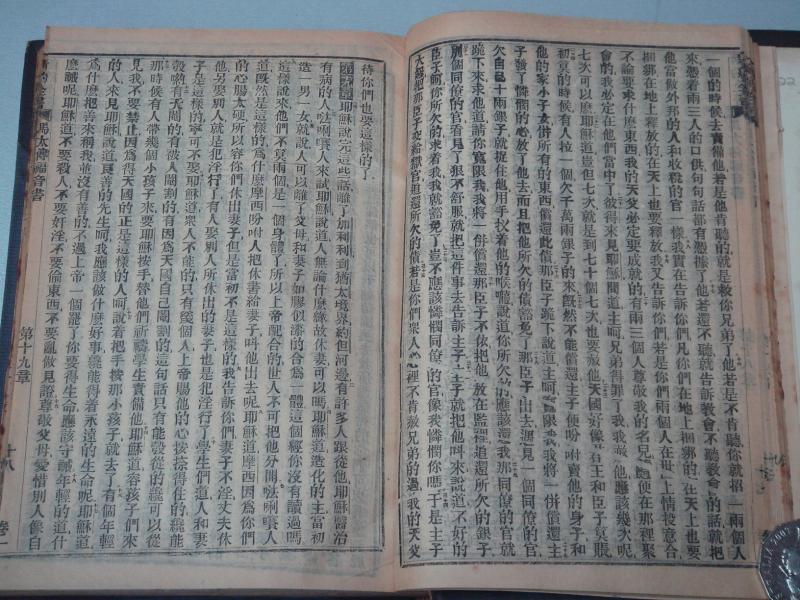 一個的時候去責備他他是肯聽的就是救你兄弟了他若是不肯聽你就招一兩個人
來憑着兩三人的口供句句話都有憑據了他若還不聽就告訴教會不聽教會的話就把
他當做外邦的人和收稅的官一樣我實在告訴你們凡你們在地上捆綁的在天上也要
捆綁在地上釋放的在天上也要釋放我又告訴你們若是你們兩個人在世上情投意合
不論要求什麼東西我的天父必定要成就的有兩三個人尊敬我的名兒隨便在那裡聚
會的我必定在他們當中了彼得來見耶穌問道主呵兄弟得罪了我我赦他應該幾次呢
七次可以麼耶穌道豈但七次就是到七十個七次也要赦他天國好像君王和臣子算賬
初算的時候有人拉一個欠千萬兩銀子的來既然不能償還主子便吩咐賣他的身子和
他的家小子女併所有的東西償還此債那臣子跪下說道主呵寬限我我將一併償還主
子發了憐憫的心放了他去而且把他所欠的債寬免了那臣子出去遇見一個同僚的官
欠自己十兩銀子就捉住他用手扠着他的喉嚨說道你所欠的應該還我那同僚的官就
跪下來求他道請你寬限我我將一併償還那臣子不依把他放在監裡追還所欠的銀子
別個同僚的官看見了狠不舒服就把這件事去告訴主子主子就把他叫來說道不好的
臣子呵你所欠的求着我我就豁免了豈不應該憐憫同僚的官像我憐憫你嗎于是主子
大怒把那臣子交給獄官追還所欠的債若是你們衆人心裡不肯赦兄弟的過我的天父
待你們也要這樣的了
耶穌說完這些話離了加利利到猶太境界約但河邊有許多人跟從他耶穌醫治
有病的人㕸唎㘔人來試耶穌說道人無論什麼緣故休妻可以嗎耶穌道造化的主當初
造一男一女就說人可以離了父母和妻子如膠似漆的合為一體這個經你沒有讀過嗎
這樣說來他們不算兩個是一個身體了所以上帝配合的世人不可把他分開㕸唎㘔人
道既然是這樣的為什麼摩西吩咐人把休書給妻子叫他出去呢耶穌道摩西因為你們
的心腸太硬所以容你們休去妻子但是當初不是這樣的我告訴你們妻子不淫丈夫休
他另娶別人就是犯淫行了有人娶別人所休出的妻子也是犯淫行了學生們道人和妻
子是這樣的寧可不要娶親了耶穌道衆人不能的只有幾個人上帝賜他的心接捺得住的纔能
彀喲有天閹的有徒人閹割的有因為天國自己閹割的這句話只有能彀從的纔可以從
那時候有人帶幾個小孩子來要耶穌按手替他們祈禱學生責備他耶穌道容孩子們來
見我不要禁止因為得天國的正是這樣的人呵說着把手按那小孩子就去了有個年輕
的人來見耶穌說道良善的先生呵我應該做什麼好事纔能得着永遠的生命呢耶穌道
為什麼把善來稱我並沒有善的不過上帝一個罷了你要得生命應該守誡年輕的道什
麼誡呢耶穌道不要殺人不要奸淫不要偷東西不要亂做見證尊敬父母愛惜別人像自
馬太傳福音書
第十九章
十八
卷一